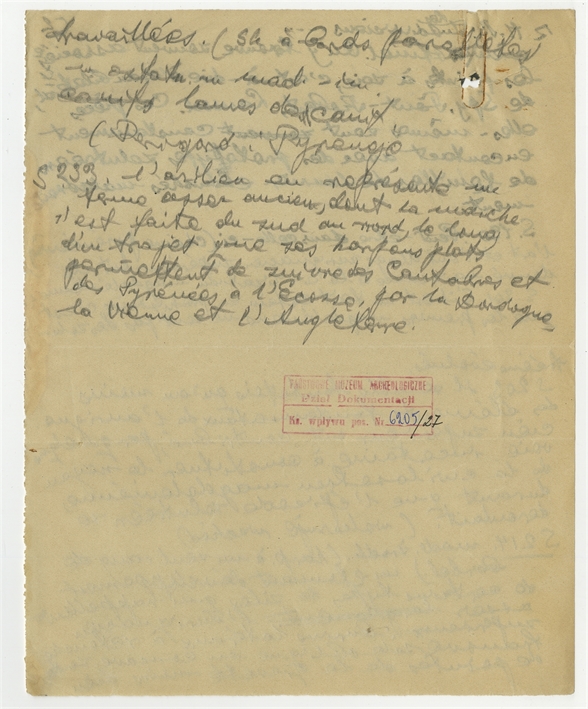 travaillées. (Sk à bords parallèles)
canifs lames de canif
(Périgord i Pyreneje
§ 239. l'azilien en représente un
terme assez ancien, dont la marche
s'est faite du sud au nord, le long
d'un trajet que ses harpons plats
permettent de suivre des Cantabres et
des Pyrénées, à l'Ecosse, par la Dordogne
la Vienne et l'Angleterre.
PAŃSTWOWE MUZEUM ARCHEOLOGICZNE
Dział Dokumentacji
Nr. wpływu poz. Nr. 6205/27